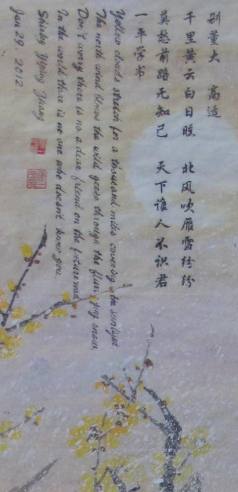 别董大 高适
千里黄云白日曛 北风吹雁雪纷纷
莫愁前路无知己 天下谁人不识君
一年学书
Yellow clouds stretch for a thousand miles covering the sunlight
The north wind blows the wild geese through the flurrying snow,
Don't worry there is no a dear friend on the future road
In the world there is no one who doesn't know you.
Shirley Zhang
Jan 29. 2012